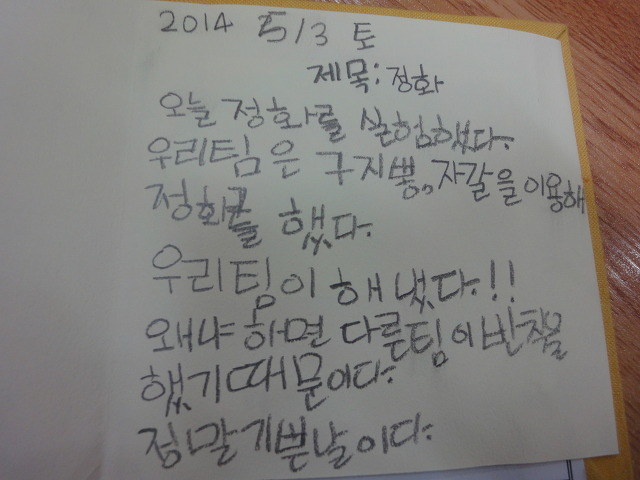 2014 5/3 토
제목: 정화
오늘 정화를 실험했다.
우리팀은 구지뽕, 자갈을 이용해
정화를 했다.
우리팀이 해냈다.!!
왜냐하면 다른팀이 반칙을
했기때문이다.
정말기쁜날이다.